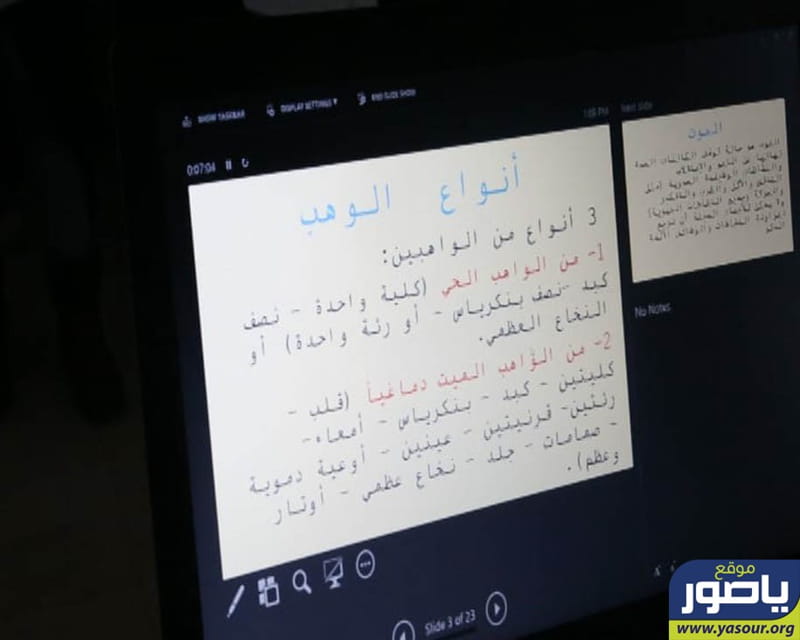 SHOW TASKBAR
DISPLAY SETTINGS
END SLIDE SHOW
0:07:04
1:05 PM
Next slide
أنواع الوهب
3 أنواع من الواهبين:
1- من الواهب الحي (كلية واحدة - نصف
كبد - نصف بنكرياس - أو رئة واحدة) أو
النخاع العظمي.
2- من الواهب الميت دماغياً (قلب -
كليتين - كبد - بنكرياس - أمعاء-
رئتين- قرنيتين - عينين - أوعية دموية
- صمامات - جلد - نخاع عظمي - أوتار
وعظم).
الموت
No Notes
Slide 3 of 23
موقع
ياصور
www.yasour.org